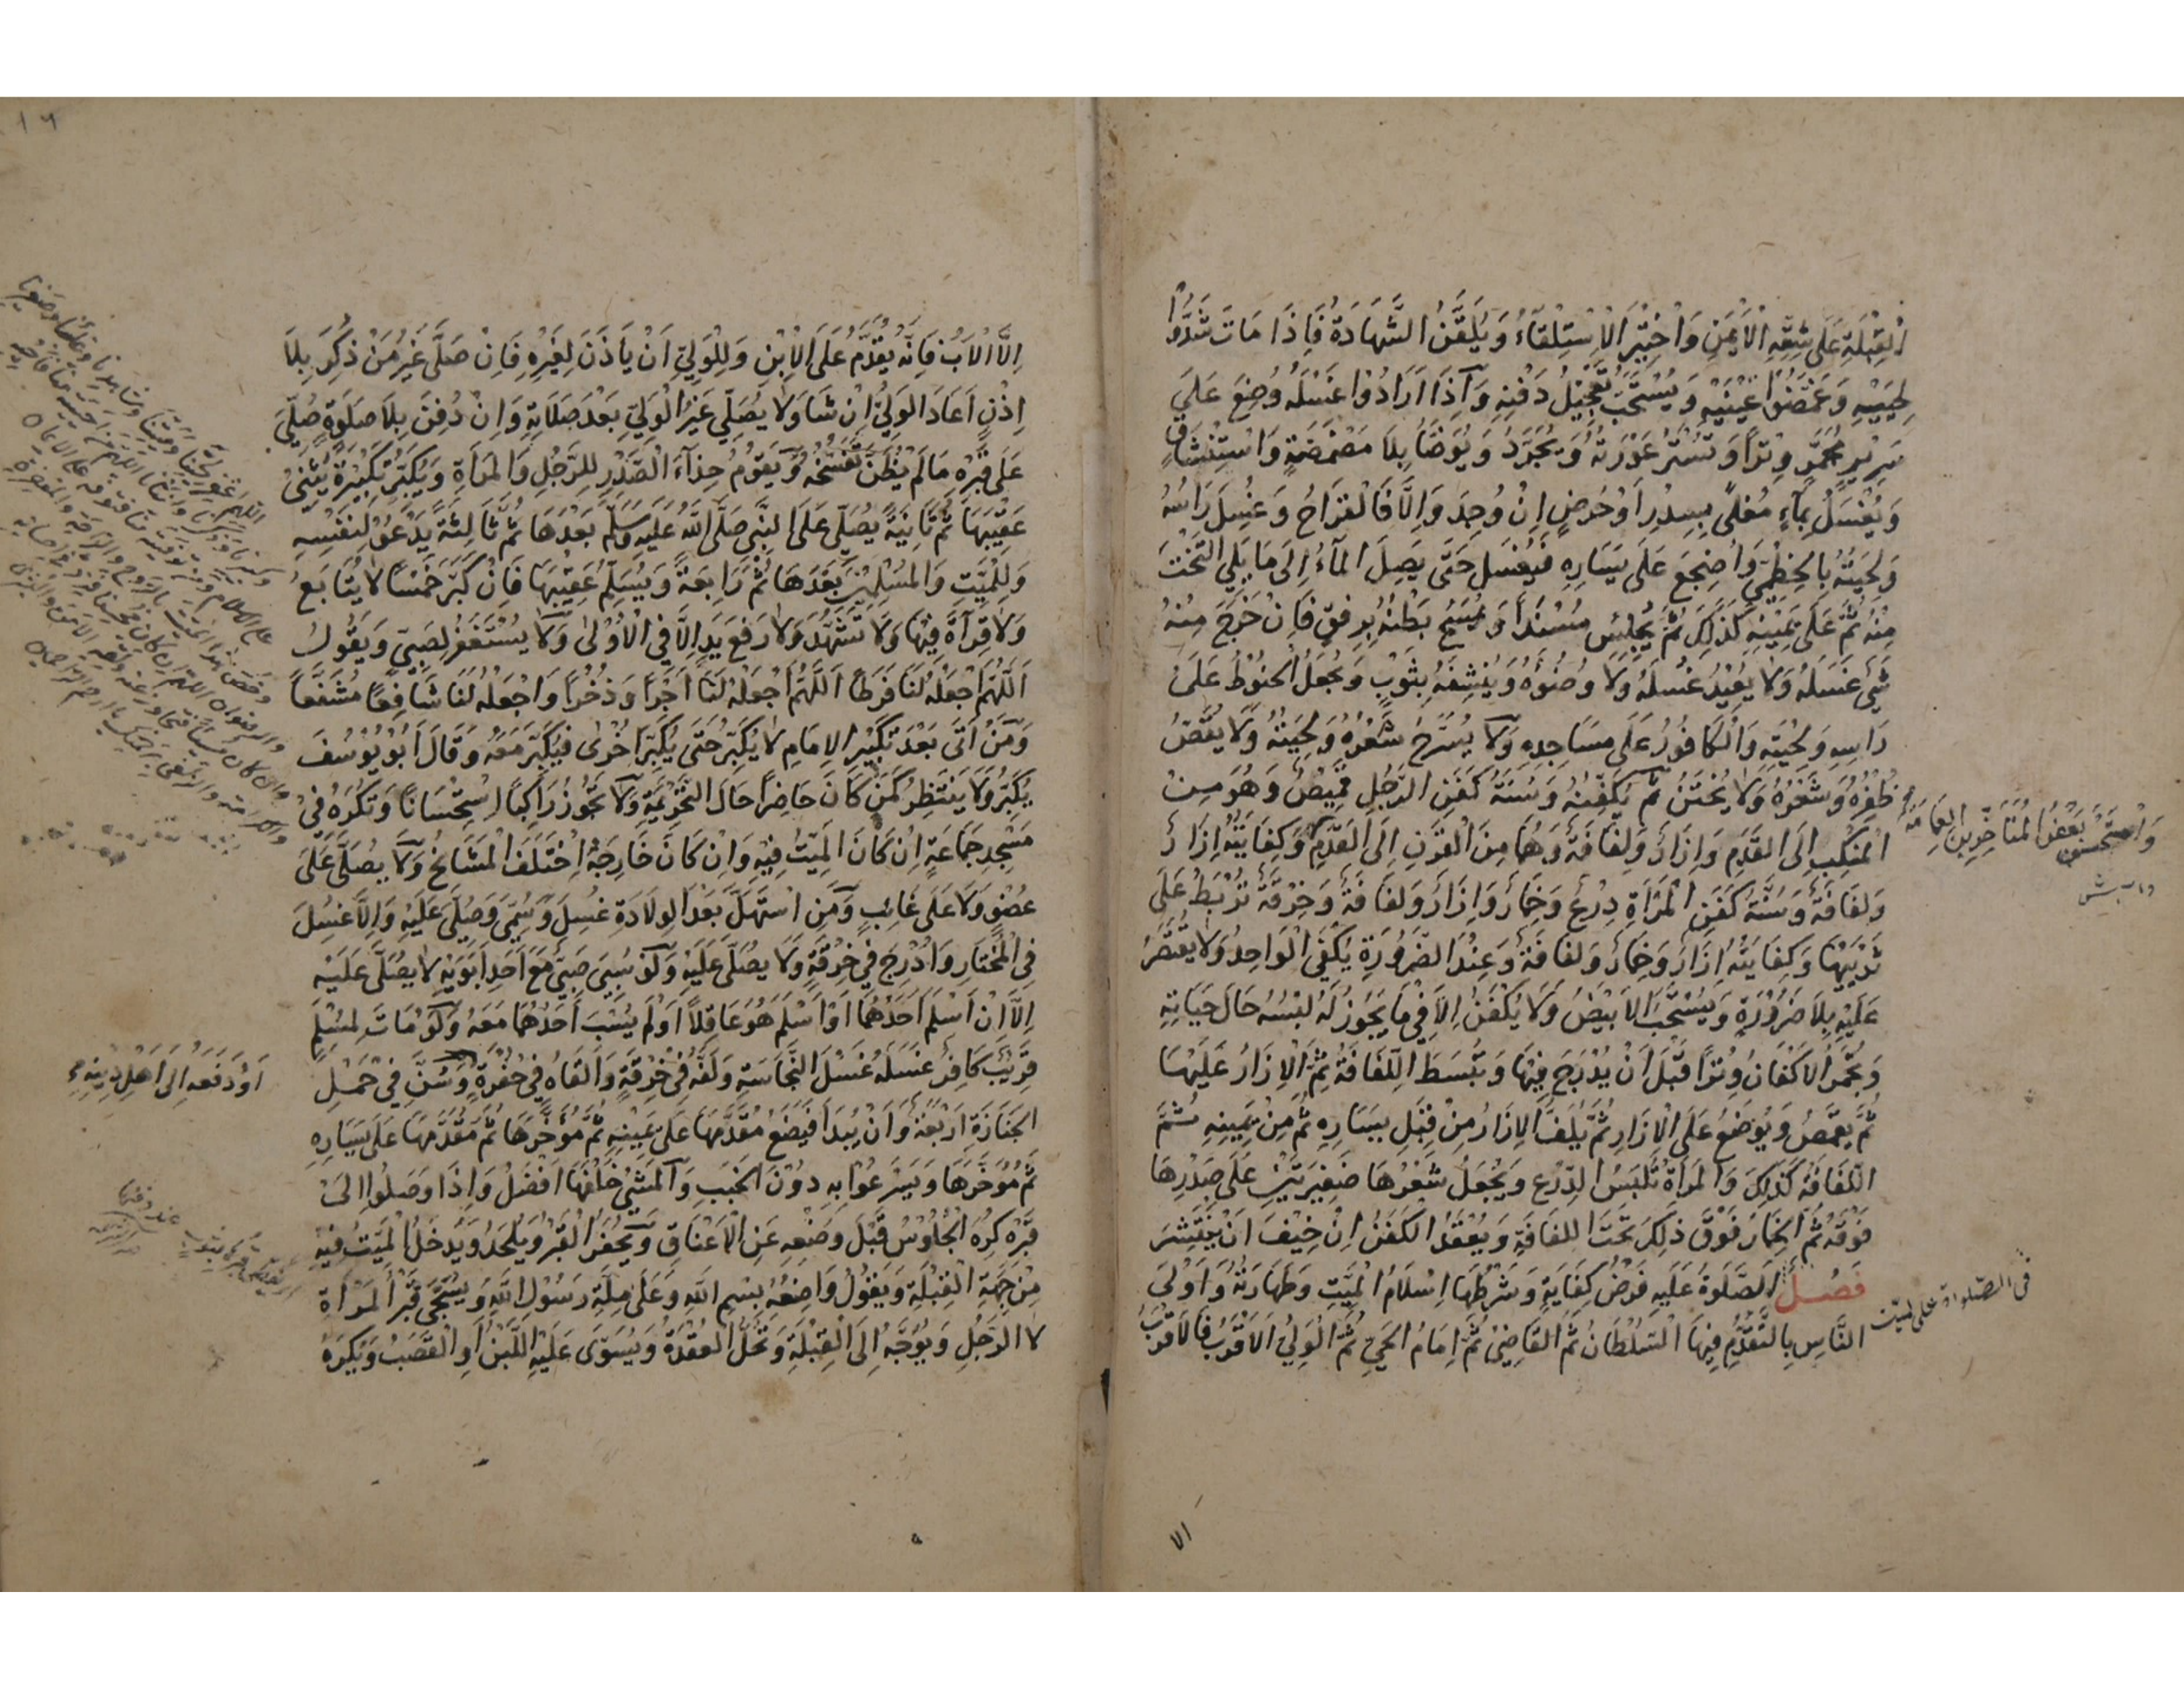 الْقِبْلَةِ عَلَى شِقِّهِ الْاَيْمَنِ وَاخْتِيرَ الْاِسْتِلْقَاءُ وَيُلَقَّنُ الشَّهَادَةُ فَاِذَا مَاتَ شَدُّوا
لِحْيَيْهِ وَغَمَّضُوا عَيْنَيْهِ وَيُسْتَحَبُّ تَعْجِيْلُ دَفْنِهِ وَاِذَا اَرَادُوا غَسْلَهُ وُضِعَ عَلَى
سَرِيرٍ مُجَمَّرٍ وِتْرًا وَتُسْتَرُ عَوْرَتُهُ وَيُجَرَّدُ وَيُوَضَّأُ بِلَا مَضْمَضَةٍ وَاسْتِنْشَاقٍ
وَيُغْسَلُ بِمَاءٍ مُغْلًى بِسِدْرٍ اَوْ حُرْضٍ اِنْ وُجِدَ وَاِلَّا فَالْقَرَاحُ وَغُسِلَ رَاْسُهُ
وَلِحْيَتُهُ بِالْخِطْمِيِّ وَاُضْجِعَ عَلَى يَسَارِهِ فَيُغْسَلُ حَتَّى يَصِلَ الْمَاءُ اِلَى مَا يَلِي التَّخْتَ
مِنْهُ ثُمَّ عَلَى يَمِيْنِهِ كَذَلِكَ ثُمَّ يُجْلَسُ مُسْنَدًا وَيُمْسَحُ بَطْنُهُ بِرِفْقٍ فَاِنْ خَرَجَ مِنْهُ
شَيْءٌ غَسَلَهُ وَلَا يُعِيْدُ غُسْلَهُ وَلَا وُضُوْءَهُ وَيُنَشِّفُهُ بِثَوْبٍ وَيُجْعَلُ الْحَنُوْطُ عَلَى
رَاْسِهِ وَلِحْيَتِهِ وَالْكَافُورُ عَلَى مَسَاجِدِهِ وَلَا يُسَرَّحُ شَعْرُهُ وَلِحْيَتُهُ وَلَا يُقَصُّ
ظُفْرُهُ وَشَعْرُهُ وَلَا يُخْتَنُ ثُمَّ يُكَفِّنُهُ وَسُنَّةُ كَفَنِ الرَّجُلِ قَمِيْصٌ وَهُوَ مِنَ
الْمَنْكِبِ اِلَى الْقَدَمِ وَاِزَارٌ وَلِفَافَةٌ وَهُمَا مِنَ الْقَرْنِ اِلَى الْقَدَمِ وَكِفَايَتُهُ اِزَارٌ
وَلِفَافَةٌ وَسُنَّةُ كَفَنِ الْمَرْاَةِ دِرْعٌ وَخِمَارٌ وَاِزَارٌ وَلِفَافَةٌ وَخِرْقَةٌ تُرْبَطُ عَلَى
ثَدْيَيْهَا وَكِفَايَتُهُ اِزَارٌ وَخِمَارٌ وَلِفَافَةٌ وَعِنْدَ الضَّرُوْرَةِ يَكْفِي الْوَاحِدُ وَلَا يُقْتَصَرُ
عَلَيْهِ بِلَا ضَرُوْرَةٍ وَيُسْتَحَبُّ الْاَبْيَضُ وَلَا يُكَفَّنُ اِلَّا فِي مَا يَجُوزُ لَهُ لُبْسُهُ حَالَ حَيَاتِهِ
وَتُجَمَّرُ الْاَكْفَانُ وِتْرًا قَبْلَ اَنْ يُدْرَجَ فِيْهَا وَتُبْسَطُ اللِّفَافَةُ ثُمَّ الْاِزَارُ عَلَيْهَا
ثُمَّ يُقَمَّصُ وَيُوضَعُ عَلَى الْاِزَارِ ثُمَّ يُلَفُّ الْاِزَارُ مِنْ قِبَلِ يَسَارِهِ ثُمَّ مِنْ يَمِيْنِهِ ثُمَّ
اللِّفَافَةُ كَذَلِكَ وَالْمَرْاَةُ تُلْبَسُ الدِّرْعَ وَيُجْعَلُ شَعْرُهَا ضَفِيرَتَيْنِ عَلَى صَدْرِهَا
فَوْقَهُ ثُمَّ الْخِمَارُ فَوْقَ ذَلِكَ تَحْتَ اللِّفَافَةِ وَيُعْقَدُ الْكَفَنُ اِنْ خِيْفَ اَنْ يَنْتَشِرَ
فَصْلٌ اَلصَّلَوةُ عَلَيْهِ فَرْضُ كِفَايَةٍ وَشَرْطُهَا اِسْلَامُ الْمَيِّتِ وَطَهَارَتُهُ وَاَوْلَى
النَّاسِ بِالتَّقَدُّمِ فِيْهَا السُّلْطَانُ ثُمَّ الْقَاضِيْ ثُمَّ اِمَامُ الْحَيِّ ثُمَّ الْوَلِيُّ الْاَقْرَبُ فَالْاَقْرَبُ
وَاسْتَحْسَنَ بَعْضُ الْمُتَاَخِّرِيْنَ الْعِمَامَةَ
فى الصلواة على الميت
الا
١٦
اِلَّا الْاَبُ فَاِنَّهُ يُقَدَّمُ عَلَى الْاِبْنِ وَلِلْوَلِيِّ اَنْ يَاْذَنَ لِغَيْرِهِ فَاِنْ صَلَّى غَيْرُ مَنْ ذُكِرَ بِلَا
اِذْنٍ اَعَادَ الْوَلِيُّ اِنْ شَا وَلَا يُصَلِّي غَيْرُ الْوَلِيِّ بَعْدَ صَلَاتِهِ وَاِنْ دُفِنَ بِلَا صَلَوةٍ صُلِّيَ
عَلَى قَبْرِهِ مَا لَمْ يُظَنَّ تَفَسُّخُهُ وَيَقُوْمُ حِذَاءَ الصَّدْرِ لِلرَّجُلِ وَالْمَرْاَةِ وَيُكَبِّرُ تَكْبِيْرَةً يُثْنِيْ
عَقِيْبَهَا ثُمَّ ثَانِيَةً يُصَلِّي عَلَى النَّبِيِّ صَلَّى اللَّهُ عَلَيْهِ وَسَلَّمَ بَعْدَهَا ثُمَّ ثَالِثَةً يَدْعُوْ لِنَفْسِهِ
وَلِلْمَيِّتِ وَالْمُسْلِمِيْنَ بَعْدَهَا ثُمَّ رَابِعَةً وَيُسَلِّمُ عَقِيْبَهَا فَاِنْ كَبَّرَ خَمْسًا لَا يُتَابَعُ
وَلَا قِرَاءَةَ فِيْهَا وَلَا تَشَهُّدَ وَلَا رَفْعَ يَدٍ اِلَّا فِي الْاُوْلَى وَلَا يُسْتَغْفَرُ لِصَبِيٍّ وَيَقُوْلُ
اَللّٰهُمَّ اجْعَلْهُ لَنَا فَرَطًا اَللّٰهُمَّ اجْعَلْهُ لَنَا اَجْرًا وَذُخْرًا وَاجْعَلْهُ لَنَا شَافِعًا مُشَفَّعًا
وَمَنْ اَتَى بَعْدَ تَكْبِيْرِ الْاِمَامِ لَا يُكَبِّرُ حَتَّى يُكَبِّرَ اُخْرَى فَيُكَبِّرَ مَعَهُ وَقَالَ اَبُوْ يُوْسُفَ
يُكَبِّرُ وَلَا يَنْتَظِرُ كَمَنْ كَانَ حَاضِرًا حَالَ التَّحْرِيْمَةِ وَلَا تَجُوْزُ رَاكِبًا اسْتِحْسَانًا وَتُكْرَهُ فِيْ
مَسْجِدِ جَمَاعَةٍ اِنْ كَانَ الْمَيِّتُ فِيْهِ وَاِنْ كَانَ خَارِجَهُ اخْتَلَفَ الْمَشَائِخُ وَلَا يُصَلَّى عَلَى
عُضْوٍ وَلَا عَلَى غَائِبٍ وَمَنِ اسْتَهَلَّ بَعْدَ الْوِلَادَةِ غُسِلَ وَسُمِّيَ وَصُلِّيَ عَلَيْهِ وَاِلَّا غُسِلَ
فِي الْمُخْتَارِ وَاُدْرِجَ فِي خِرْقَةٍ وَلَا يُصَلَّى عَلَيْهِ وَلَوْ سُبِيَ صَبِيٌّ مَعَ اَحَدِ اَبَوَيْهِ لَا يُصَلَّى عَلَيْهِ
اِلَّا اِنْ اَسْلَمَ اَحَدُهُمَا اَوْ اَسْلَمَ هُوَ عَاقِلًا اَوْ لَمْ يُسْبَ اَحَدُهُمَا مَعَهُ وَلَوْ مَاتَ لِمُسْلِمٍ
قَرِيْبٌ كَافِرٌ غَسَلَهُ غَسْلَ النَّجَاسَةِ وَلَفَّهُ فِي خِرْقَةٍ وَاَلْقَاهُ فِي حُفْرَةٍ وَسُنَّ فِي حَمْلِ
الْجَنَازَةِ اَرْبَعَةٌ وَاَنْ يَبْدَاَ فَيَضَعَ مُقَدَّمَهَا عَلَى يَمِيْنِهِ ثُمَّ مُؤَخَّرَهَا ثُمَّ مُقَدَّمَهَا عَلَى يَسَارِهِ
ثُمَّ مُؤَخَّرَهَا وَيُسْرِعُوْا بِهِ دُوْنَ الْخَبَبِ وَالْمَشْيُ خَلْفَهَا اَفْضَلُ وَاِذَا وَصَلُوا اِلَى
قَبْرِهِ كُرِهَ الْجُلُوْسُ قَبْلَ وَضْعِهِ عَنِ الْاَعْنَاقِ وَيُحْفَرُ الْقَبْرُ وَيُلْحَدُ وَيُدْخَلُ الْمَيِّتُ فِيْهِ
مِنْ جِهَةِ الْقِبْلَةِ وَيَقُوْلُ وَاضِعُهُ بِسْمِ اللّٰهِ وَعَلَى مِلَّةِ رَسُوْلِ اللّٰهِ وَيُسَجَّى قَبْرُ الْمَرْاَةِ
لَا الرَّجُلِ وَيُوَجَّهُ اِلَى الْقِبْلَةِ وَتُحَلُّ الْعُقْدَةُ وَيُسَوَّى عَلَيْهِ اللَّبِنُ اَوِ الْقَصَبُ وَيُكْرَهُ
اَوْ دَفَعَهُ اِلَى اَهْلِ دِيْنِهِ